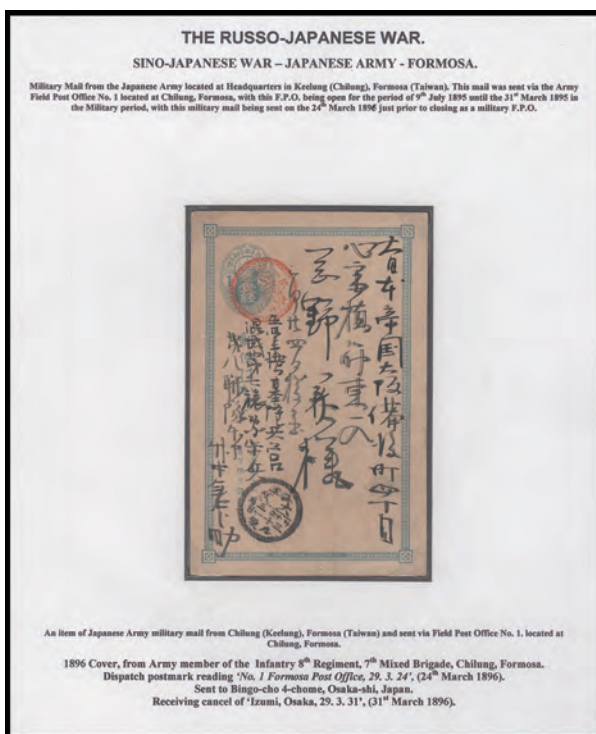 THE RUSSO-JAPANESE WAR.
SINO-JAPANESE WAR – JAPANESE ARMY - FORMOSA.
Military Mail from the Japanese Army located at Headquarters in Keelung (Chilung), Formosa (Taiwan). This mail was sent via the Army
Field Post Office No. 1 located at Chilung, Formosa, with this F.P.O. being open for the period of 9th July 1895 until the 31st March 1895 in
the Military period, with this military mail being sent on the 24th March 1896 just prior to closing as a military F.P.O.
大日本帝国大阪備後町四丁目
心斎橋筋東へ入
野 様
An item of Japanese Army military mail from Chilung (Keelung), Formosa (Taiwan) and sent via Field Post Office No. 1. located at
Chilung, Formosa.
1896 Cover, from Army member of the Infantry 8th Regiment, 7th Mixed Brigade, Chilung, Formosa.
Dispatch postmark reading ‘No. 1 Formosa Post Office, 29. 3. 24’, (24th March 1896).
Sent to Bingo-cho 4-chome, Osaka-shi, Japan.
Receiving cancel of ‘Izumi, Osaka, 29. 3. 31’, (31st March 1896).